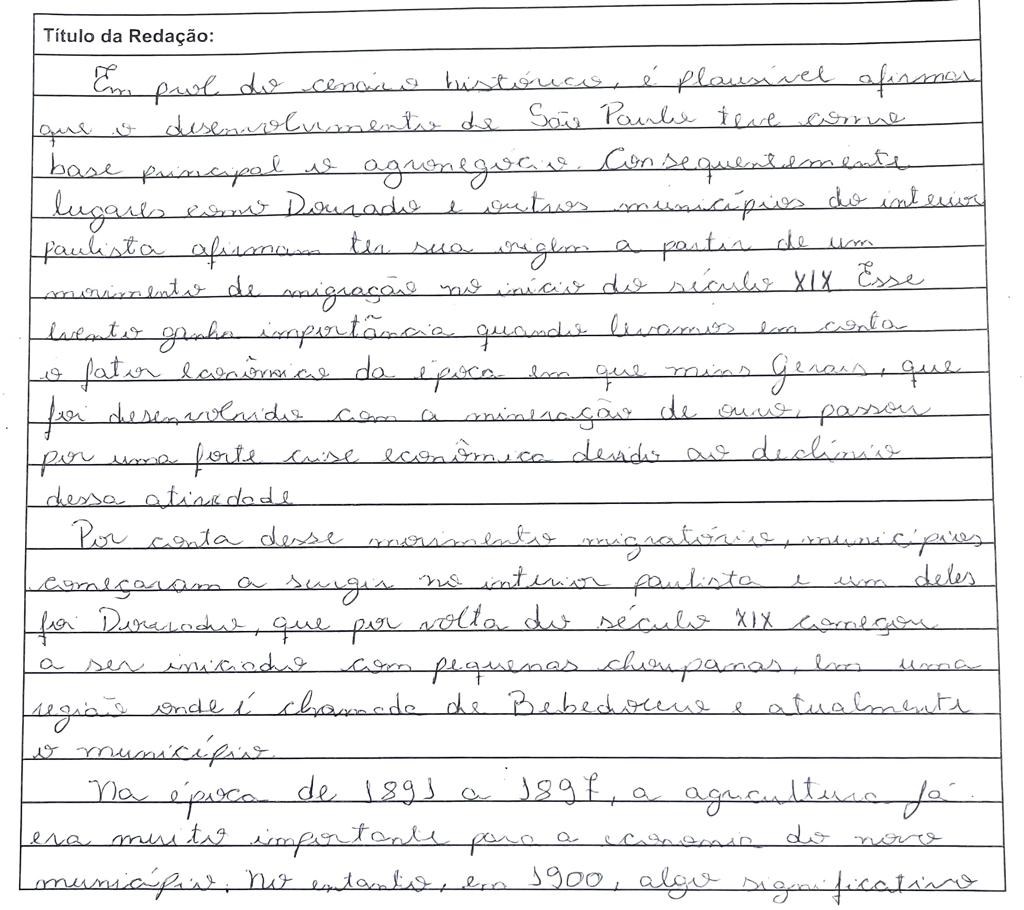 Título da Redação:
Em prol do cenário histórico, é plausível afirmar
que o desenvolvimento de São Paulo teve como
base principal o agronegócio. Consequentemente
lugares como Dourado e outros municípios do interior
paulista afirmam ter sua origem a partir de um
movimento de migração no início do século XIX Esse
evento ganha importância quando levamos em conta
o fator econômico da época em que mins Gerais, que
foi desenvolvido com a mineração de ouro, passou
por uma forte crise econômica devido ao declínio
dessa atividade
Por conta desse movimento migratório, municípios
começaram a surgir no interior paulista e um deles
foi Dourado, que por volta do século XIX começou
a ser iniciado com pequenas choupanas, em uma
região onde é chamada de Bebedouro e atualmente
o município.
Na época de 1891 a 1897, a agricultura já
era muito importante para a economia do novo
município. No entanto, em 1900, algo significativo